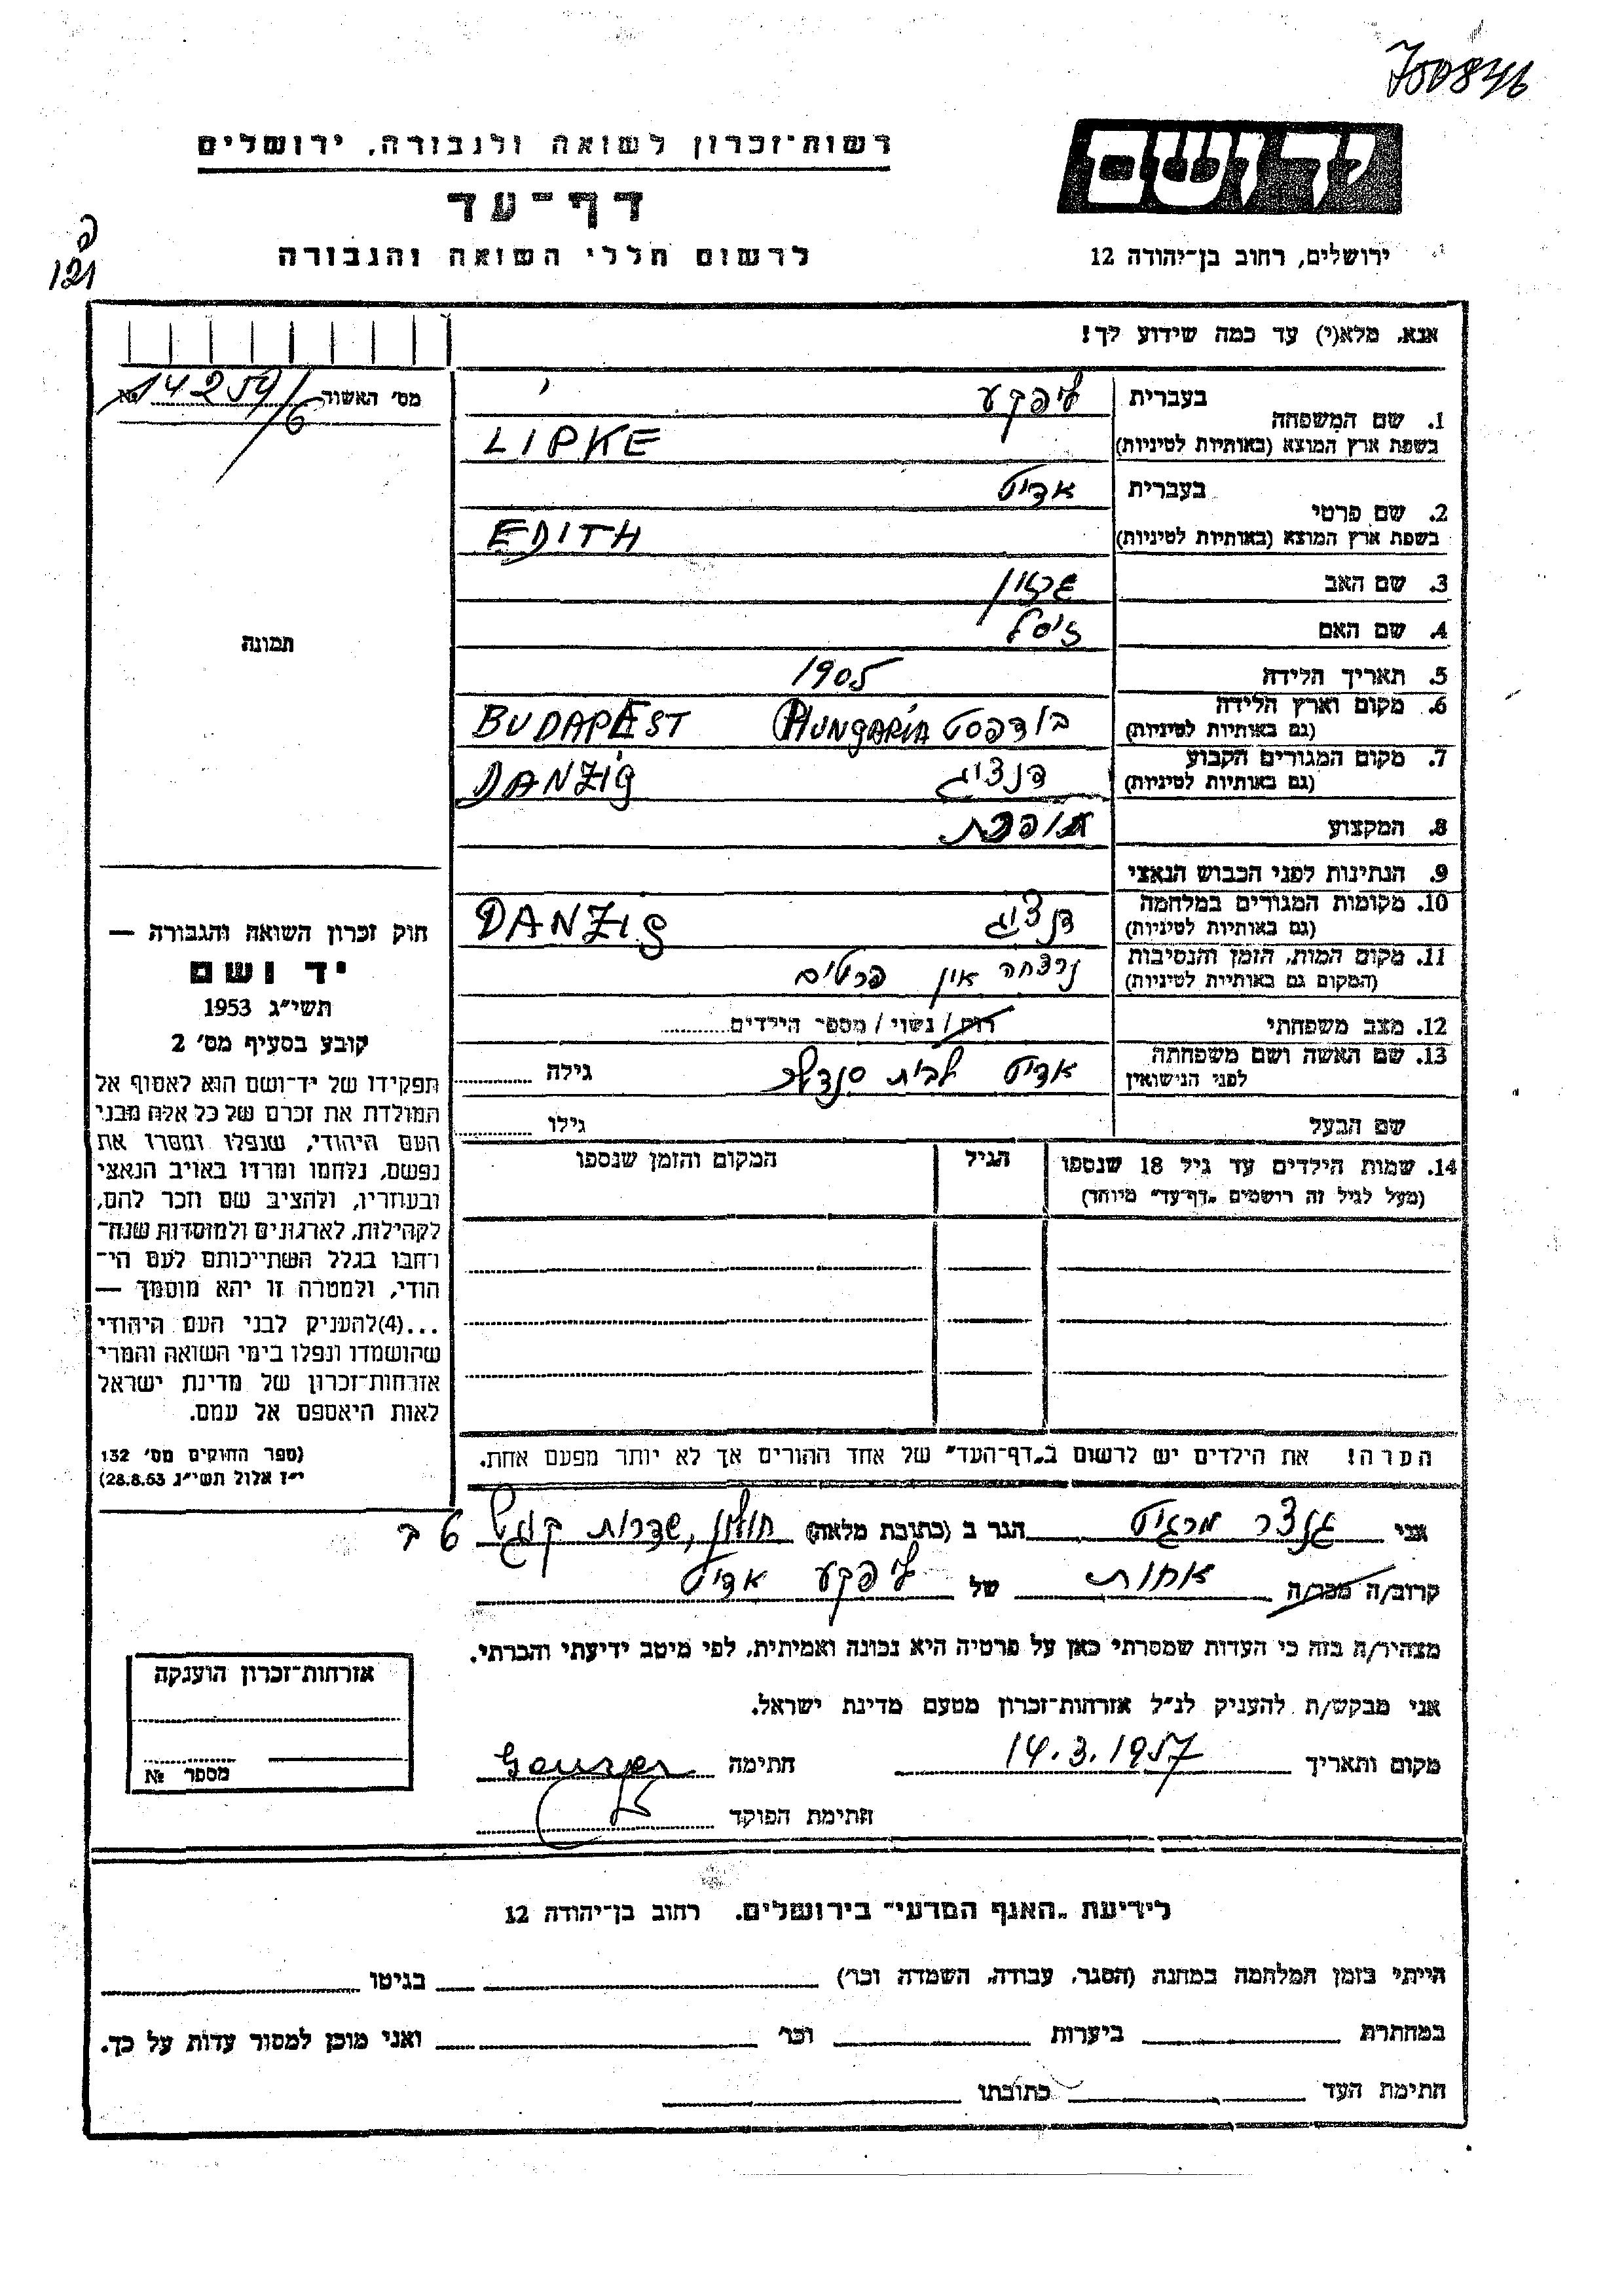 700846
יד ושם
רשות־זכרון לשואה ולגבורה, ירושלים
דף־עד
לרשום חללי השואה והגבורה
ירושלים, רחוב בן־יהודה 12
121
אנא, מלא(י) עד כמה שידוע לך!
מס׳ האשוה № 14259/6
1. שם המשפחה בעברית ליפקע
בשפת ארץ המוצא (באותיות לטיניות) LIPKE
2. שם פרטי בעברית אדיט
בשפת ארץ המוצא (באותיות לטיניות) EDITH
3. שם האב
4. שם האם זיסל
תמונה
5. תאריך הלידה 1905
6. מקום וארץ הלידה (גם באותיות לטיניות) בודפסט HUNGARIA BUDAPEST
7. מקום המגורים הקבוע (גם באותיות לטיניות) דנציג DANZIG
8. המקצוע תופרת
9. הנתינות לפני הכבוש הנאצי
10. מקומות המגורים במלחמה (גם באותיות לטיניות) דנציג DANZIG
11. מקום המות, הזמן והנסיבות (המקום גם באותיות לטיניות) נרצחה אין פרטים
12. מצב משפחתי רוק / נשוי / מספר הילדים
13. שם האשה ושם משפחתה לפני הנישואין אדיט לבית גילה
שם הבעל גילו
14. שמות הילדים עד גיל 18 שנספו הגיל המקום והזמן שנספו
(מעל לגיל זה רושמים „דף־עד״ מיוחד)
חוק זכרון השואה והגבורה —
יד ושם
תשי״ג 1953
קובע בסעיף מס׳ 2
תפקידו של יד־ושם הוא לאסוף אל
המולדת את זכרם של כל אלה מבני
העם היהודי, שנפלו ומסרו את
נפשם, נלחמו ומרדו באויב הנאצי
ובעוזריו, ולהציב שם וזכר להם,
לקהילות, לארגונים ולמוסדות שנח־
רחבו בגלל השתייכותם לעם הי־
הודי, ולמטרה זו יהא מוסמך —
...(4)להעניק לבני העם היהודי
שהושמדו ונפלו בימי השואה והמרי
אזרחות־זכרון של מדינת ישראל
לאות היאספם אל עמם.
(ספר החוקים מס׳ 132
י״ז אלול תשי״ג 28.8.53)
הערה! את הילדים יש לרשום ב„דף־העד״ של אחד ההורים אך לא יותר מפעם אחת.
אני גנצר מרגיט הגר ב (כתובת מלאה) חולון, שדרות קוגל 6 ב
קרוב/ה מכר/ה אחות של ליפקע אדיט
מצהיר/ה בזה כי העדות שמסרתי כאן על פרטיה היא נכונה ואמיתית, לפי מיטב ידיעתי והכרתי.
אני מבקש/ת להעניק לנ״ל אזרחות־זכרון מטעם מדינת ישראל.
מקום ותאריך 14.3.1957 חתימה
חתימת הפוקד
אזרחות־זכרון הוענקה
מספר №
לידיעת „האגף המדעי״ בירושלים. רחוב בן־יהודה 12
הייתי בזמן המלחמה במחנה (הסגר, עבודה, השמדה וכר׳) בגיטו
במחתרת ביערות וכר׳ ואני מוכן למסור עדות על כך.
חתימת העד כתובתו